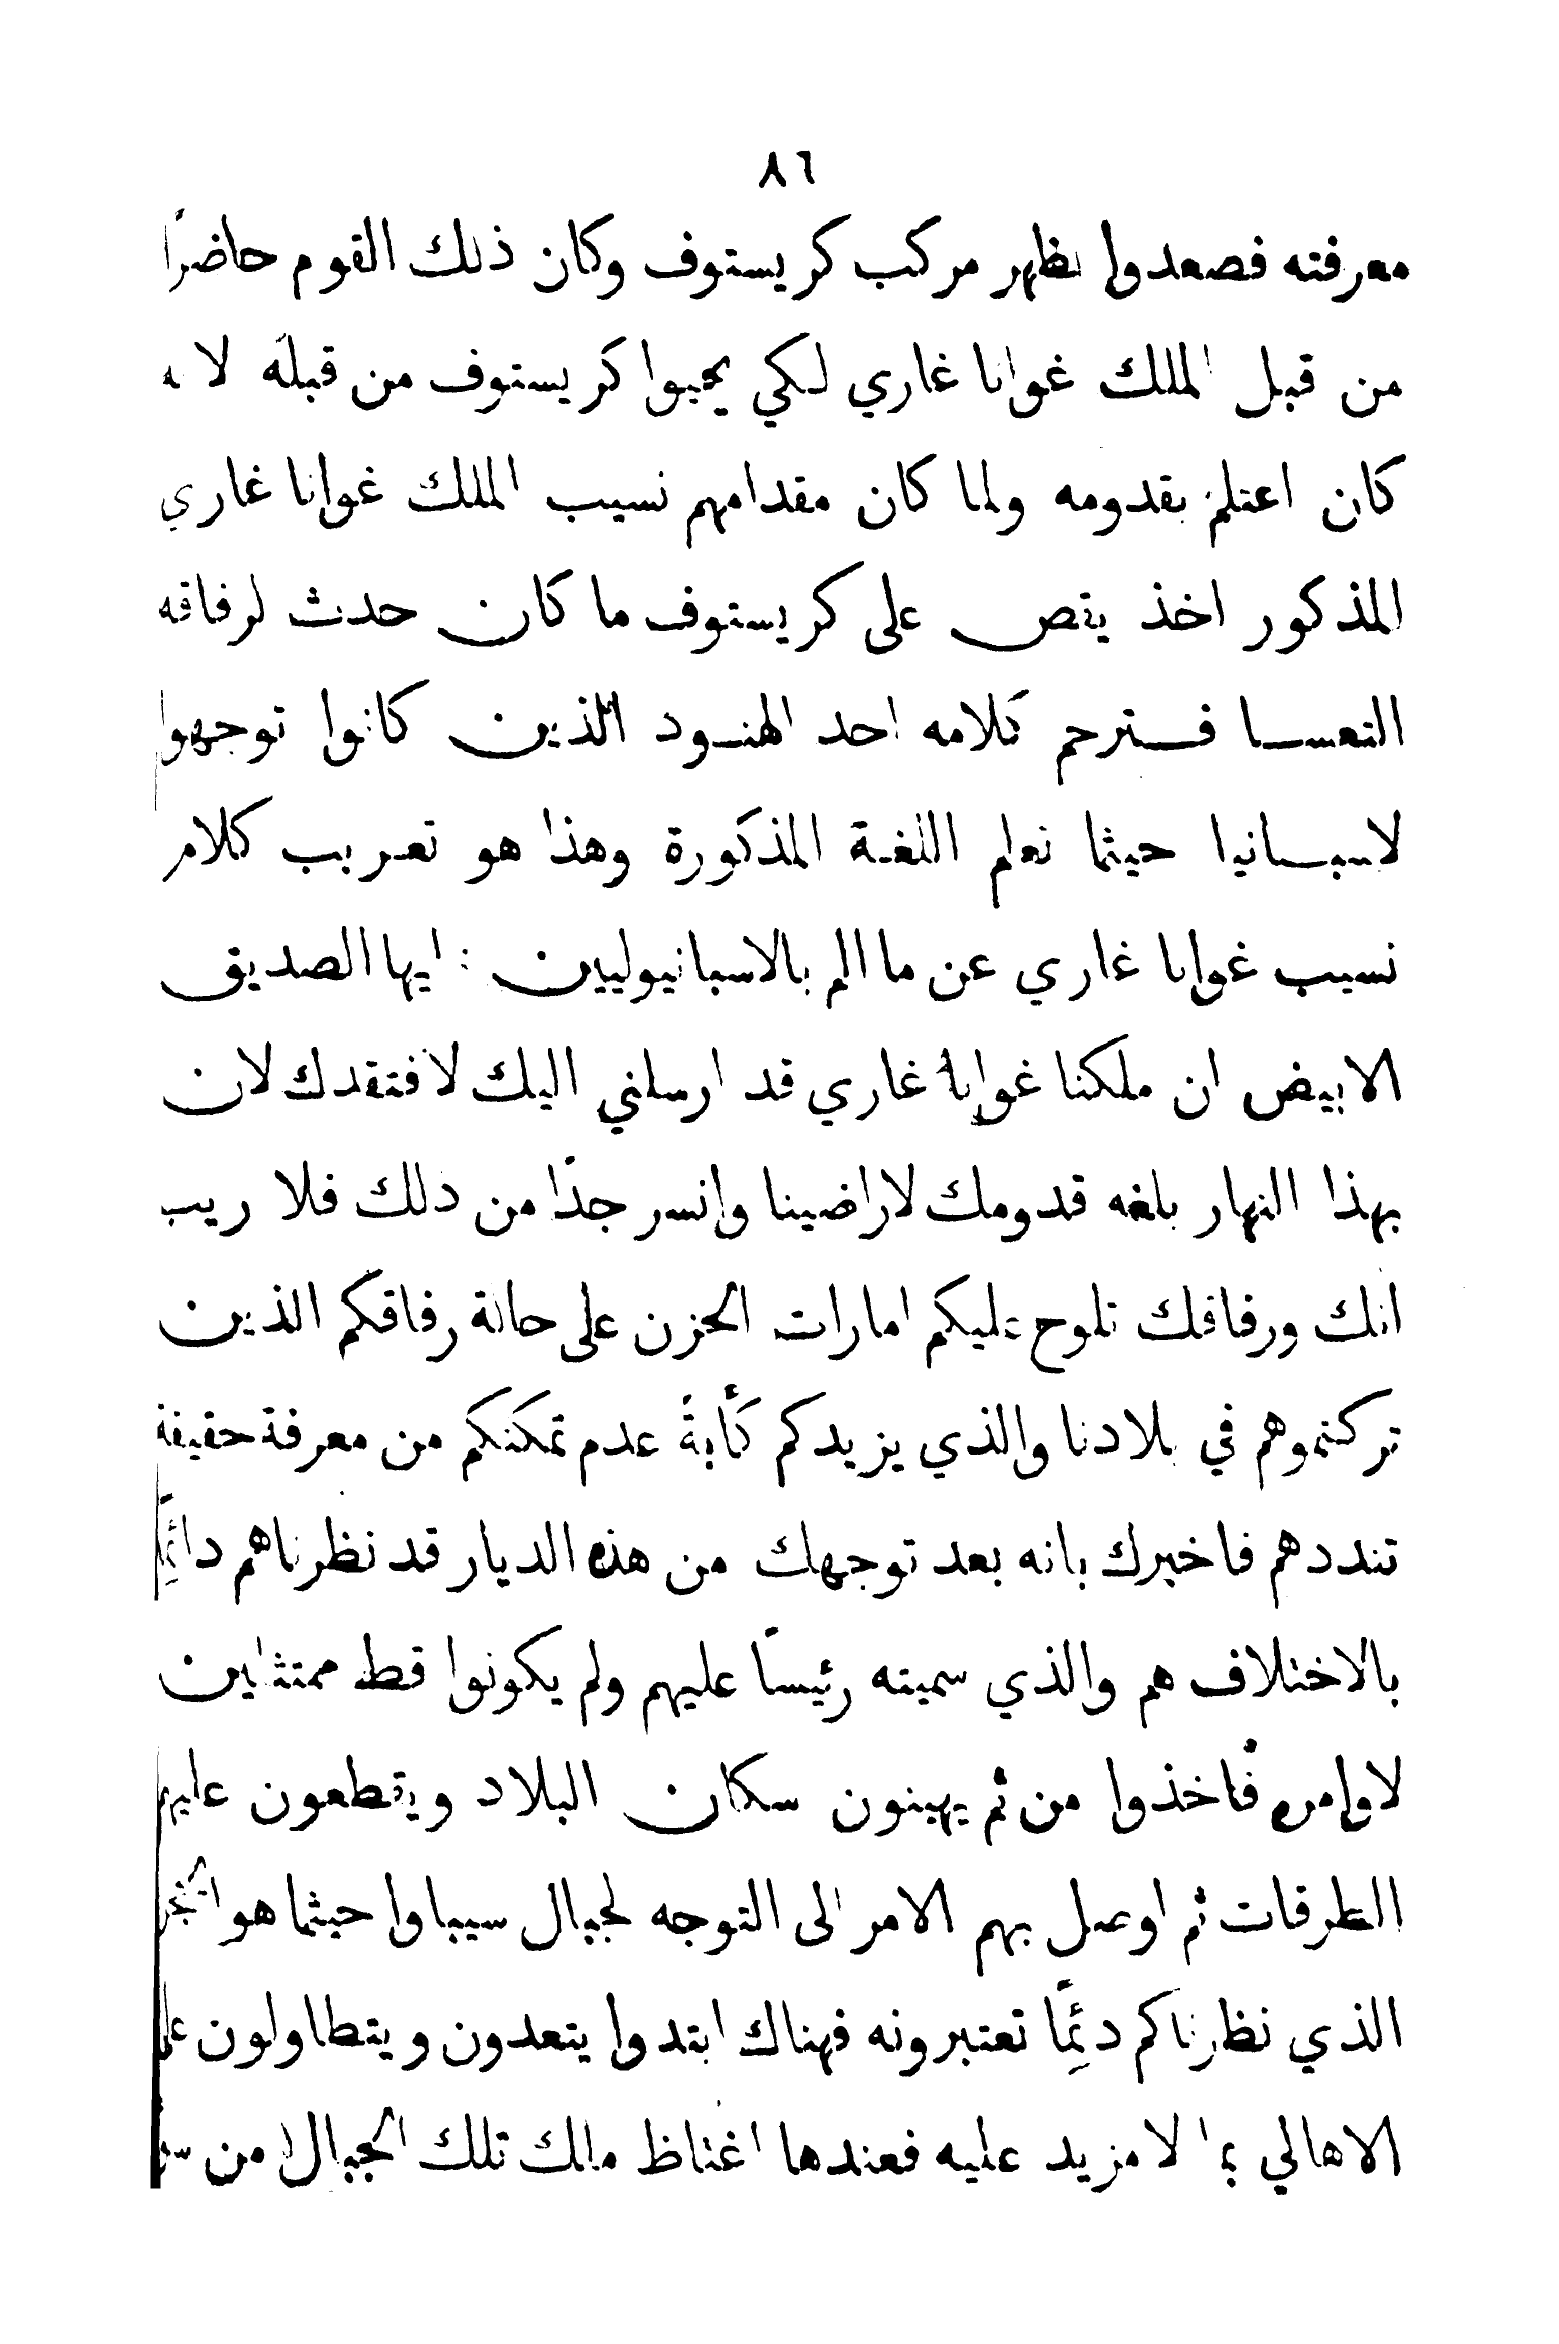 ٨٦
معرفته فصعدوا لظهر مركب كريستوف وكان ذلك القوم حاضرًا
من قبل الملك غوانا غاري لكي يحيوا كريستوف من قبله لانه
كان اعتلم بقدومه ولما كان مقدامهم نسيب الملك غوانا غاري
المذكور اخذ يقص على كريستوف ما كان حدث لرفاقه
التعسا فسترحم كلامه احد الهنود الذين كانوا توجهوا
لاسبانيا حيثما تعلم اللغة المذكورة وهذا هو تعريب كلام
نسيب غوانا غاري عن ما الم بالاسبانيوليين : ايها الصديق
الابيض ان ملكنا غوانا غاري قد ارسلني اليك لافتقدك لان
بهذا النهار بلغه قدومك لاراضينا وانسر جدًا من ذلك فلا ريب
انك ورفاقك تلوح عليكم امارات الحزن على حالة رفاقكم الذين
تركتموهم في بلادنا والذي يزيدكم كأبةً عدم تمكنكم من معرفة حقيقة
تنددهم فاخبرك بانه بعد توجهك من هذه الديار قد نظرناهم دائمًا
بالاختلاف هم والذي سميته رئيسًا عليهم ولم يكونوا قط ممتثلين
لاوامره فاخذوا من ثم يهينون سكان البلاد ويقطعون عليهم
الطرقات ثم اوصل بهم الامر الى التوجه لجبال سيباوا حيثما هو الحجر
الذي نظرناكم دئمًا تعتبرونه فهناك ابتدوا يتعدون ويتطاولون على
الاهالي بما لا مزيد عليه فعندها اغتاظ مالك تلك الجبال من